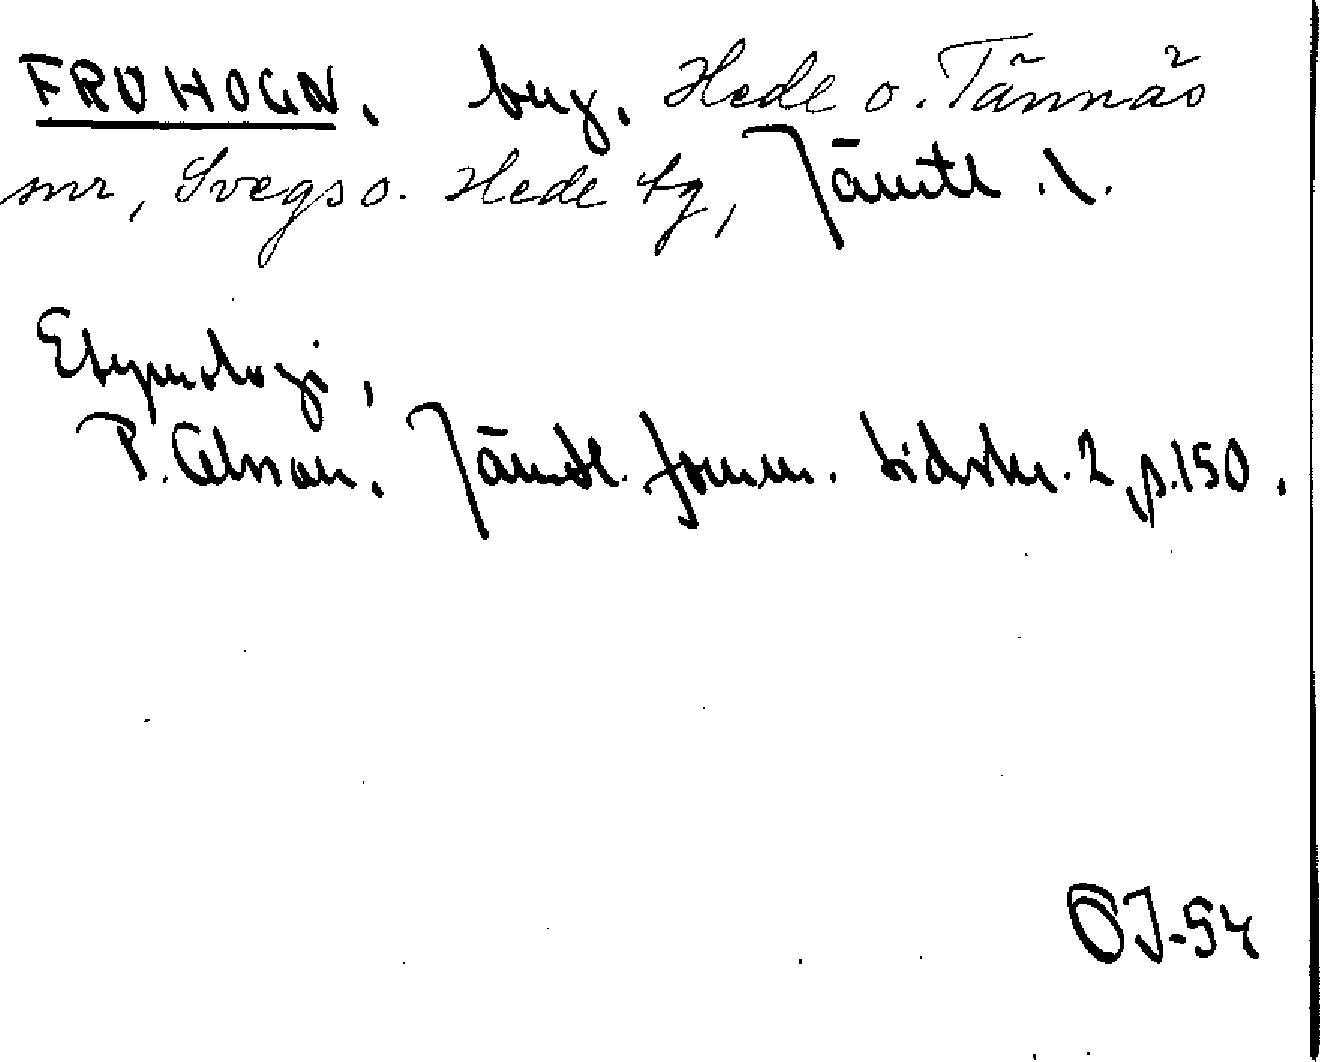 FRUHOGN. berg. Hede o. Tännäs
snr, Svegs o. Hede tg, Jämtl. l.
Etymologi,
P. Olsson. Jämtl. fornm. tidskr. 2, p. 150.
ÖJ-54